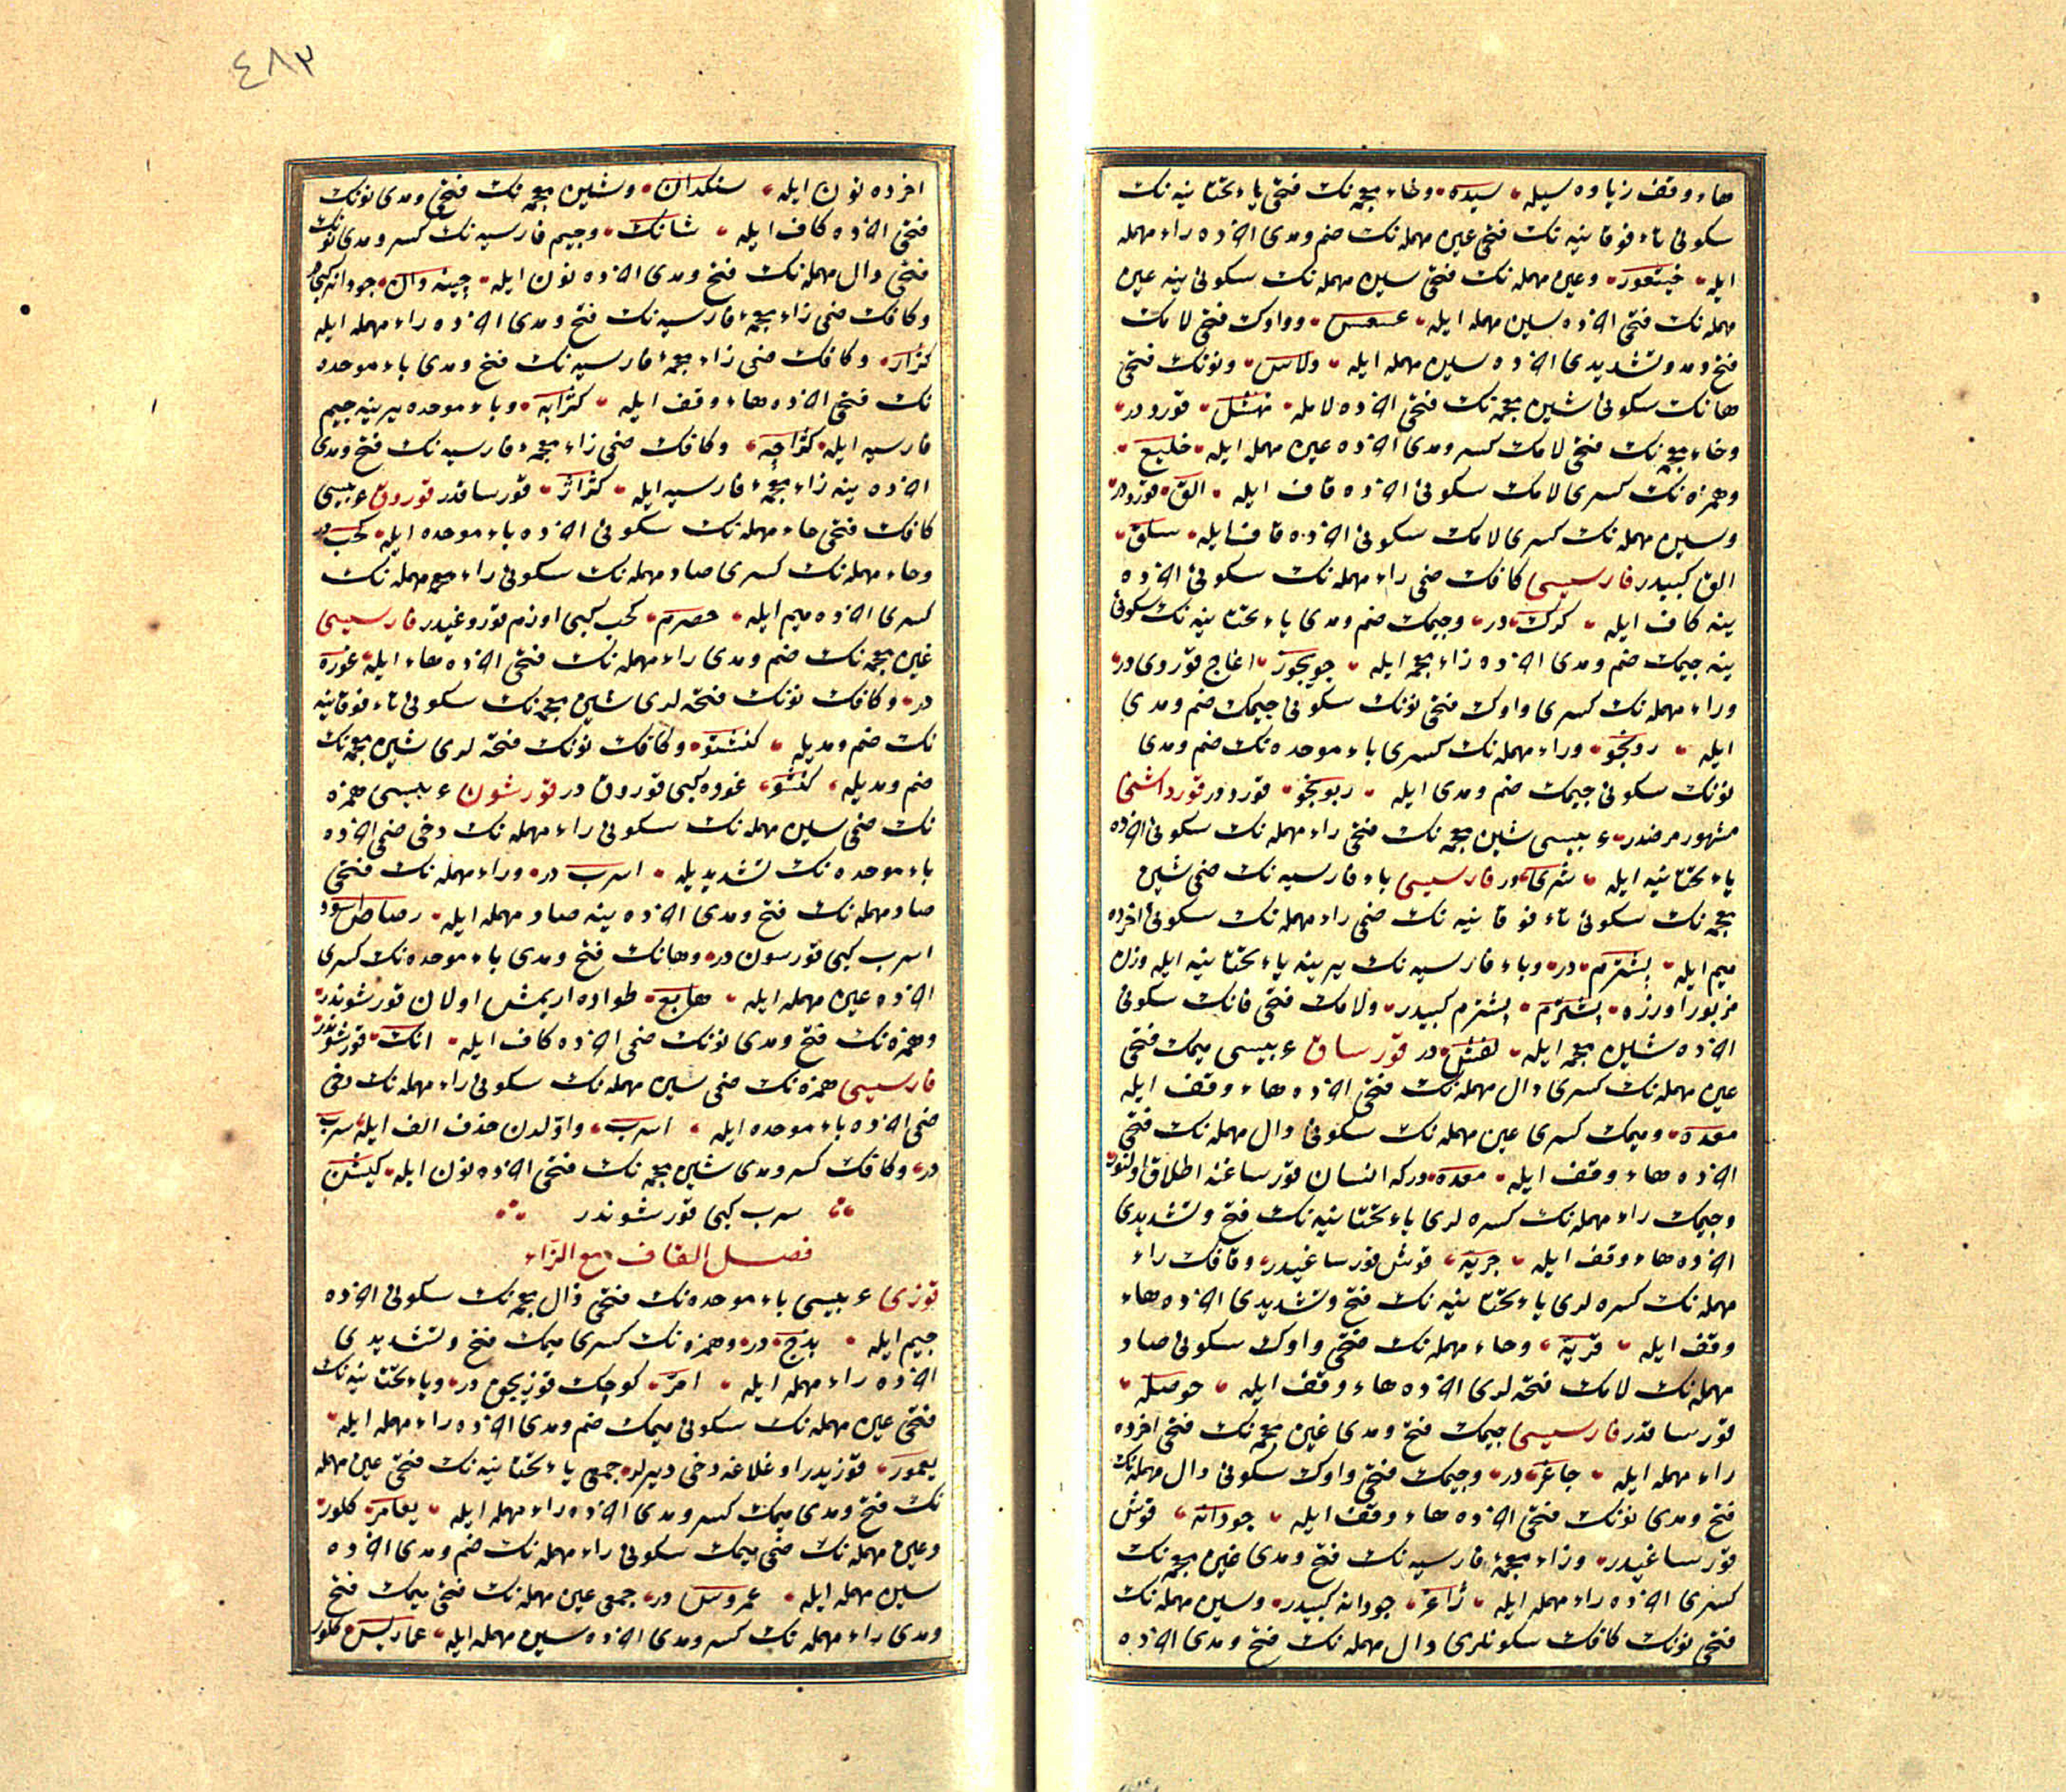 هاء وقف زیاده سیله سیده وخاء معجمه نک فتحی یاء تحتانیه نک
سکونی تاء فوقانیه نک فتحی عین مهمله نک ضم ومدی اخرده راء مهمله
ایله خیتعور وعین مهمله نک فتحی سین مهمله نک سکونی ینه عین
مهمله نک فتحی اخرده سین مهمله ایله عسعس وواوک فتحی لامک
فتح ومد وتشدیدی اخرده سین مهمله ایله ولاس ونونک فتحی
هانک سکونی شین معجمه نک فتحی اخرده لامله نهشل قورددر
وخاء معجمه نک فتحی لامک کسر ومدی اخرده عین مهمله ایله خلیع
وهمزه نک کسری لامک سکونی اخرده قاف ایله القا قورددر
وسین مهمله نک کسری لامک سکونی اخرده قاف ایله سلق
الق کبیدر فارسیسی کافک ضمی راء مهمله نک سکونی اخرده
ینه کاف ایله کرک در وجیمک ضم ومدی یاء تحتانیه نک سکونی
ینه جیمک ضم ومدی اخرده زاء معجمه ایله جویجوز اغاج قوردی در
وراء مهمله نک کسری واوک فتحی نونک سکونی جیمک ضم ومدی
ایله رونجو وراء مهمله نک کسری باء موحده نک ضم ومدی
نونک سکونی جیمک ضم ومدی ایله ربونجو قورددر قورد اشنی
مشهور مرضدر عربیسی شین معجمه نک فتحی راء مهمله نک سکونی اخرده
یاء تحتانیه ایله شری در فارسیسی باء فارسیه نک ضمی شین
معجمه نک سکونی تاء فوقانیه نک ضمی راء مهمله نک سکونی اخرده
میم ایله پشترم در وباء فارسیه نک یرینه یاء تحتانیه ایله وزن
مزبور اوزره یشترم پشترم کبیدر ولامک فتحی فانک سکونی
اخرده شین معجمه ایله لفش در قورساق عربیسی میمک فتحی
عین مهمله نک کسری دال مهمله نک فتحی اخرده هاء وقف ایله
معده ومیمک کسری عین مهمله نک سکونی دال مهمله نک فتحی
اخرده هاء وقف ایله معده درکه انسان قورساغنه اطلاق اولنور
وجیمک راء مهمله نک کسره لری یاء تحتانیه نک فتح وتشدیدی
اخرده هاء وقف ایله جریه قوش قورساغیدر وقافک راء
مهمله نک کسره لری یاء تحتانیه نک فتح وتشدیدی اخرده هاء
وقف ایله قریه وحاء مهمله نک فتحی واوک سکونی صاد
مهمله نک لامک فتحه لری اخرده هاء وقف ایله حوصله
قورساقدر فارسیسی جیمک فتح ومدی غین معجمه نک فتحی اخرده
راء مهمله ایله جاغر در وجیمک فتحی واوک سکونی دال مهمله نک
فتح ومدی نونک فتحی اخرده هاء وقف ایله جودانه قوش
قورساغیدر وزاء معجمه فارسیه نک فتح ومدی غین معجمه نک
کسری اخرده راء مهمله ایله ژاغر جودانه کبیدر وسین مهمله نک
فتحی نونک کافک سکونلری دال مهمله نک فتح ومدی اخرده
٤٨٣
اخرده نون ایله سنکدان وشین معجمه نک فتح ومدی نونک
فتحی اخرده کاف ایله شانک وجیم فارسیه نک کسر ومدی نونک
فتحی دال مهمله نک فتح ومدی اخرده نون ایله چینه دان جودانه کبی در
وکافک ضمی زاء معجمه فارسیه نک فتح ومدی اخرده راء مهمله ایله
کژار وکافک ضمی زاء معجمه فارسیه نک فتح ومدی باء موحده
نک فتحی اخرده هاء وقف ایله کژابه وباء موحده یرینه جیم
فارسیه ایله کژاجه وکافک ضمی زاء معجمه فارسیه نک فتح ومدی
اخرده ینه زاء معجمه فارسیه ایله کژاژ قورساقدر قوروق عربیسی
کافک فتحی حاء مهمله نک سکونی اخرده باء موحده ایله کحب در
وحاء مهمله نک کسری صاد مهمله نک سکونی راء مهمله نک
کسری اخرده میم ایله حصرم کحب کبی اوزم قوروغیدر فارسیسی
غین معجمه نک ضم ومدی راء مهمله نک فتحی اخرده هاء ایله غوره
در وکافک نونک فتحه لری شین معجمه نک سکونی تاء فوقانیه
نک ضم ومدیله کنشتو وکافک نونک فتحه لری شین معجمه نک
ضم ومدیله کنشو غوره کبی قوروق در قورشون عربیسی همزه
نک ضمی سین مهمله نک سکونی راء مهمله نک دخی ضمی اخرده
باء موحده نک تشدیدیله اسرب در وراء مهمله نک فتحی
صاد مهمله نک فتح ومدی اخرده ینه صاد مهمله ایله رصاص اسود
اسرب کبی قورسون در وهانک فتح ومدی باء موحده نک کسری
اخرده عین مهمله ایله هابع طواده اریمش اولان قورشوندر
وهمزه نک فتح ومدی نونک ضمی اخرده کاف ایله انک قورشوندر
فارسیسی همزه نک ضمی سین مهمله نک سکونی راء مهمله نک دخی
ضمی اخرده باء موحده ایله اسرب واولدن حذف الف ایله سرب
در وکافک کسر ومدی شین معجمه نک فتحی اخرده نون ایله کیشن
سرب کبی قورشوندر
فصل القاف مع الزاء
قوزی عربیسی باء موحده نک فتحی ذال معجمه نک سکونی اخرده
جیم ایله بذج در وهمزه نک کسری میمک فتح وتشدیدی
اخرده راء مهمله ایله امر کوچک قوزیجق در ویاء تحتانیه نک
فتحی عین مهمله نک سکونی میمک ضم ومدی اخرده راء مهمله ایله
یعمور قوزیدر اوغلاغه دخی دیرلر جمعی یاء تحتانیه نک فتحی عین مهمله
نک فتح ومدی میمک کسر ومدی اخرده راء مهمله ایله یعامر کلور
وعین مهمله نک ضمی میمک سکونی راء مهمله نک ضم ومدی اخرده
سین مهمله ایله عمروس در جمعی عین مهمله نک فتحی میمک فتح
ومدی راء مهمله نک کسر ومدی اخرده سین مهمله ایله عماریس کلور